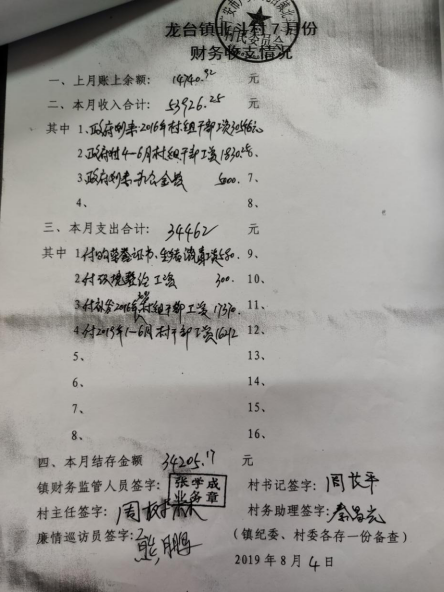 龙台镇北斗村7月份
财务收支情况
村民委员会
一、上月账上余额: 14740.92 元
二、本月收入合计: 53926.25 元
其中 1、政府划来2016年村组干部工资30596元
2、政府付4-6月村组干部工资18330.25 6、
3、政府划来办公金额 5000. 7、
4、 8、
三、本月支出合计: 34462 元
其中 1、付购荣誉证书、生猪消毒 580. 9、
2、付环境整治工资 300. 10、
3、付 2016年村组干部工资 17370. 11、
4、付2019年1-6月村干部工资16212 12、
5、 13、
6、 14、
7、 15、
8、 16、
四、本月结存金额 34205.17 元
镇财务监管人员签字: 张学成 业务章 村书记签字: 周长平
村主任签字: 周 村务助理签字: 秦
廉情巡访员签字: 熊鹏 (镇纪委、村委各存一份备查)
2019年8月4日